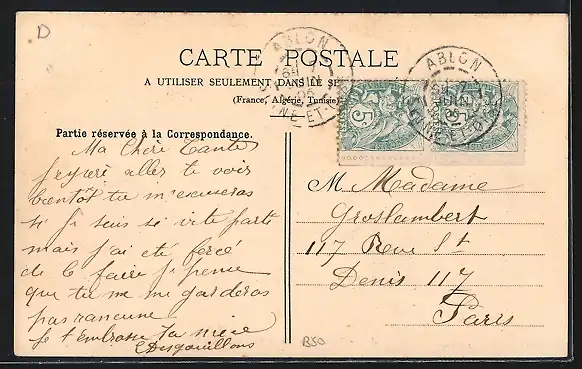 D
CARTE POSTALE
A UTILISER SEULEMENT DANS LE SE
(France, Algérie, Tunisie)
ABLON
SEINE-ET-OISE
ABLON
JUIN
5
Partie réservée à la Correspondance.
Ma Chère Tante
j'espère aller te voir
bientôt tu m'excuseras
si je suis si vite parti
mais j'ai été forcé
de le faire je pense
que tu ne me garderas
pas rancune
Je t'embrasse ta nièce
M Madame
Groslambert
117 Rue St
Denis 117
Paris
B50